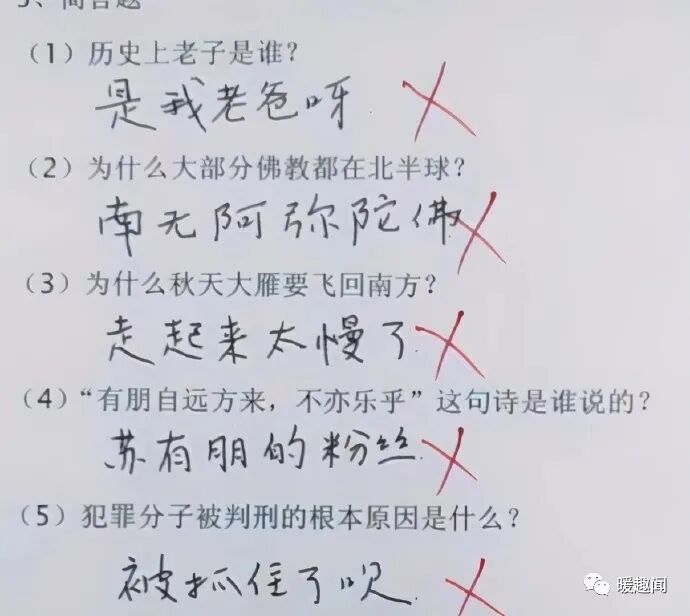 5、简答题
（1）历史上老子是谁？
是我老爸呀.
（2）为什么大部分佛教都在北半球？
南无阿弥陀佛
（3）为什么秋天大雁要飞回南方？
走起来太慢了
（4）“有朋自远方来，不亦乐乎”这句诗是谁说的？
苏有朋的粉丝.
（5）犯罪分子被判刑的根本原因是什么？
被抓住了呗
暖趣闻